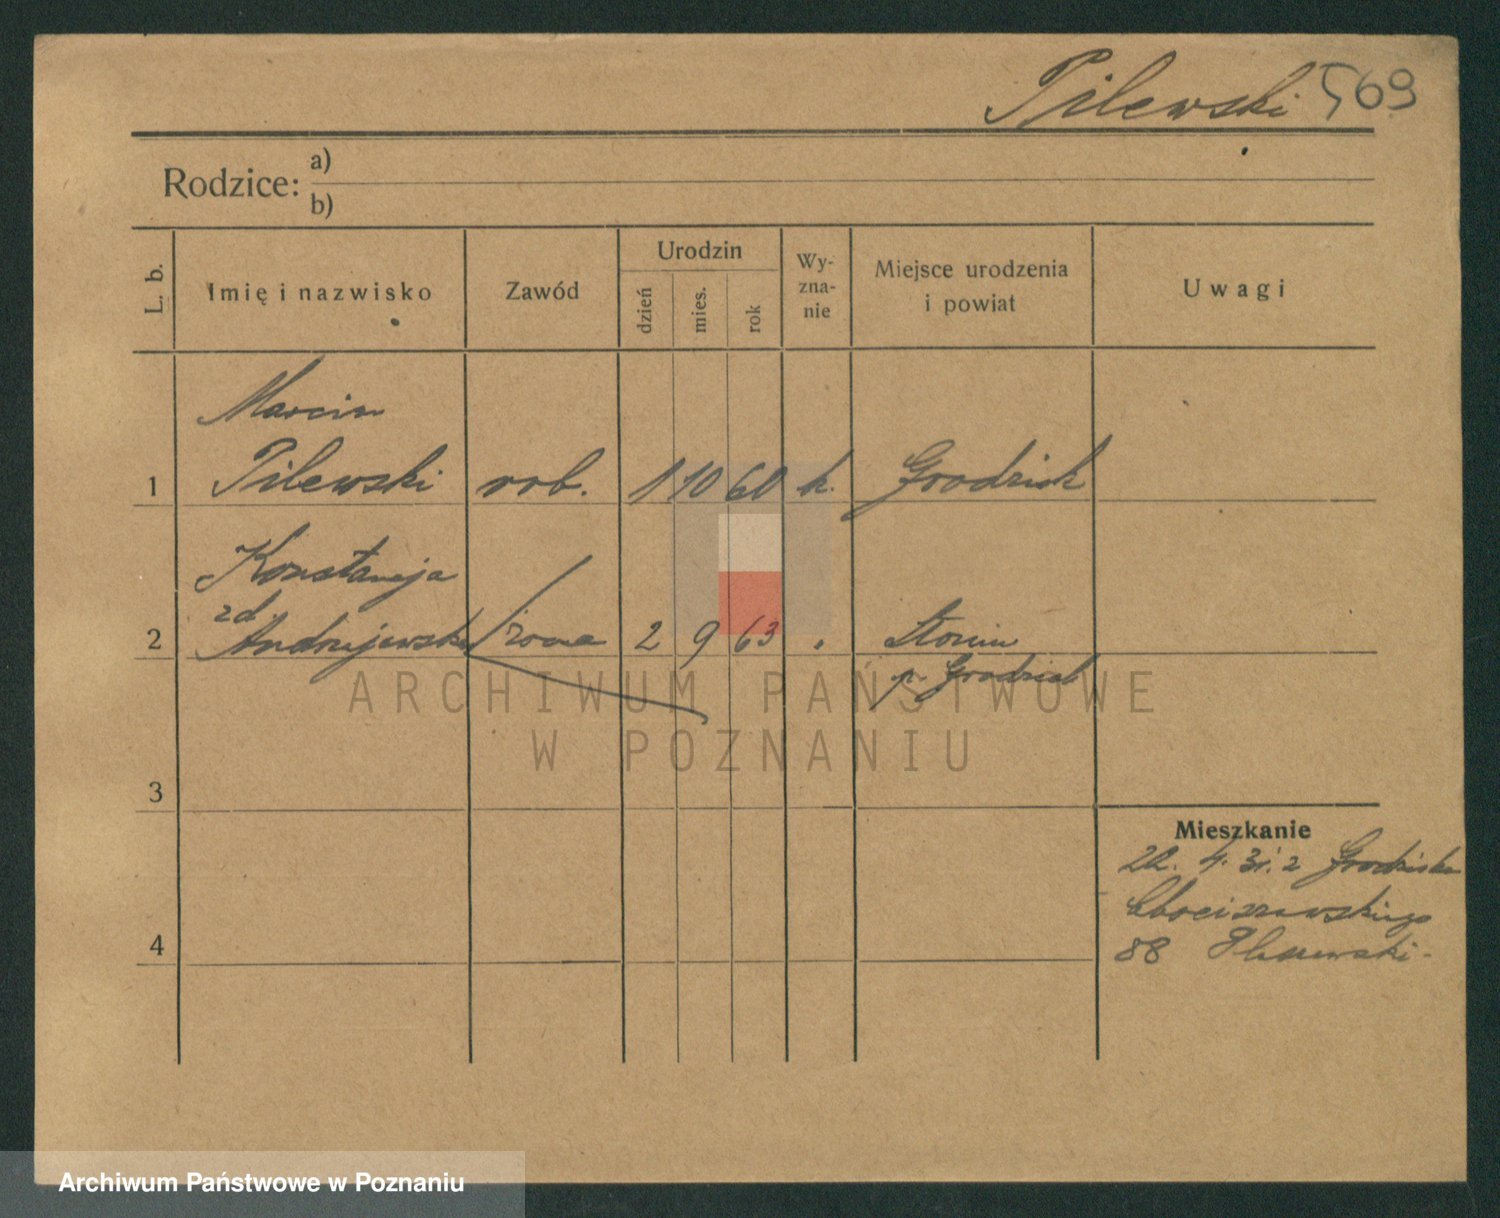 Pilewski 569
Rodzice:
a)
b)
L. b.
Imię i nazwisko
Zawód
Urodzin
dzień
mies.
rok
Wy-
zna-
nie
Miejsce urodzenia
i powiat
Uwagi
Marcin
1 Pilewski rob. 1 10 60 k. Grodzisk
Konstancja
zd.
2 Andrzejewska żona 2 9 63 Słonin
p. Grodzisk
ARCHIWUM PAŃSTWOWE
W POZNANIU
3
Mieszkanie
22. 4. 31. z Grodziska
Chociszewskiego
4
88
Archiwum Państwowe w Poznaniu